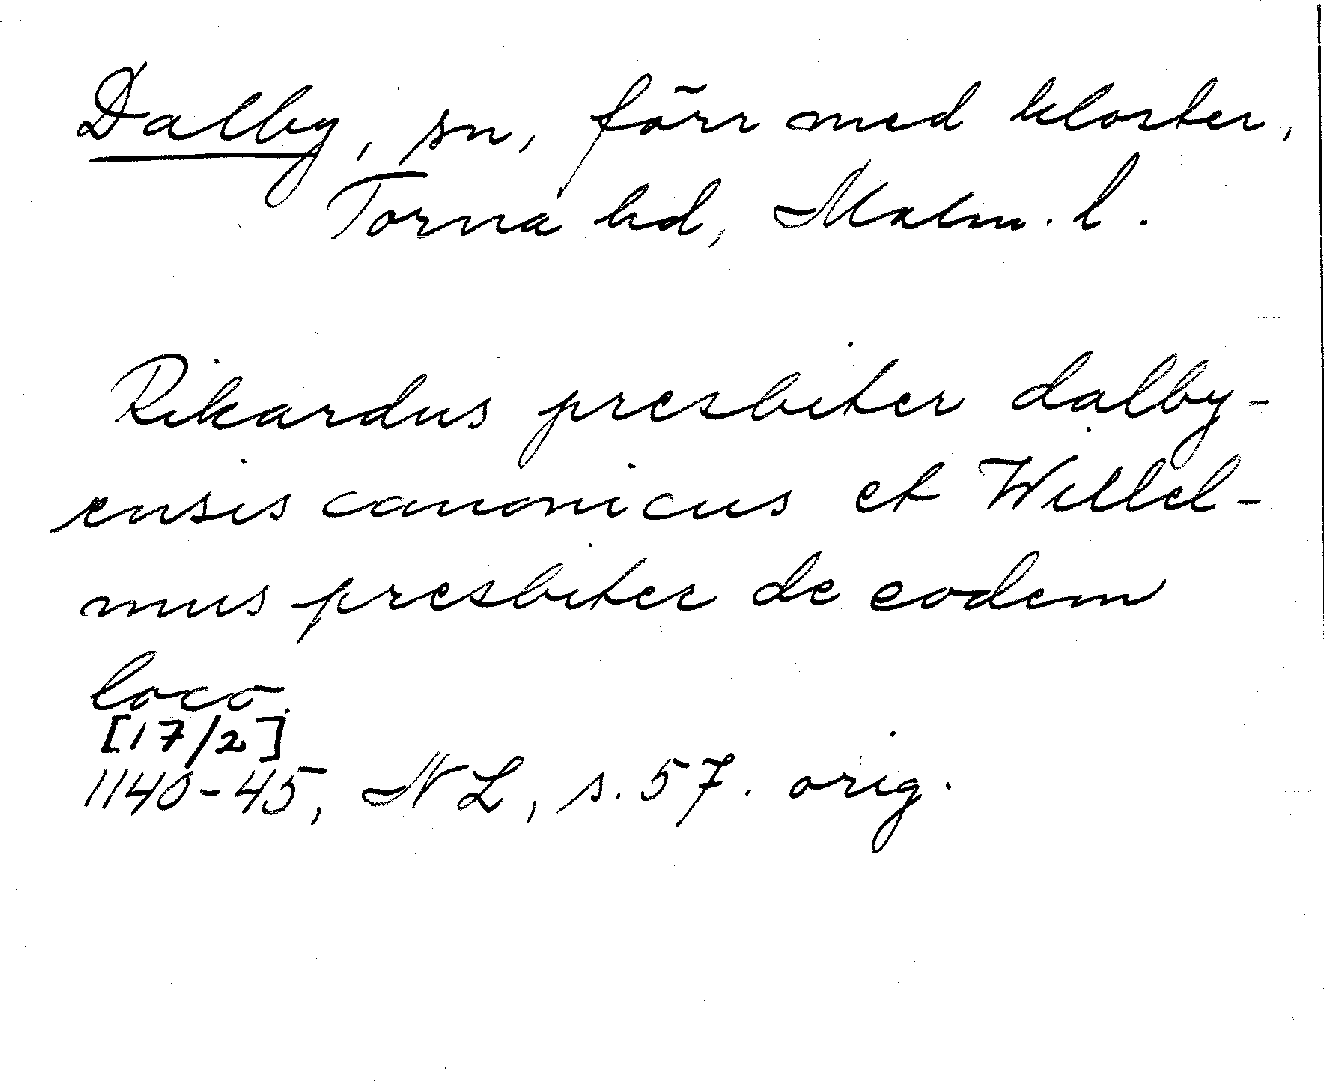 Dalby, sn, förr med kloster,
Torna hd, Malm. l.
Rikardus presbiter dalby-
ensis canonicus et Willel-
mus presbiter de eodem
loco.
[17/2]
1140-45, NL, s. 57. orig.